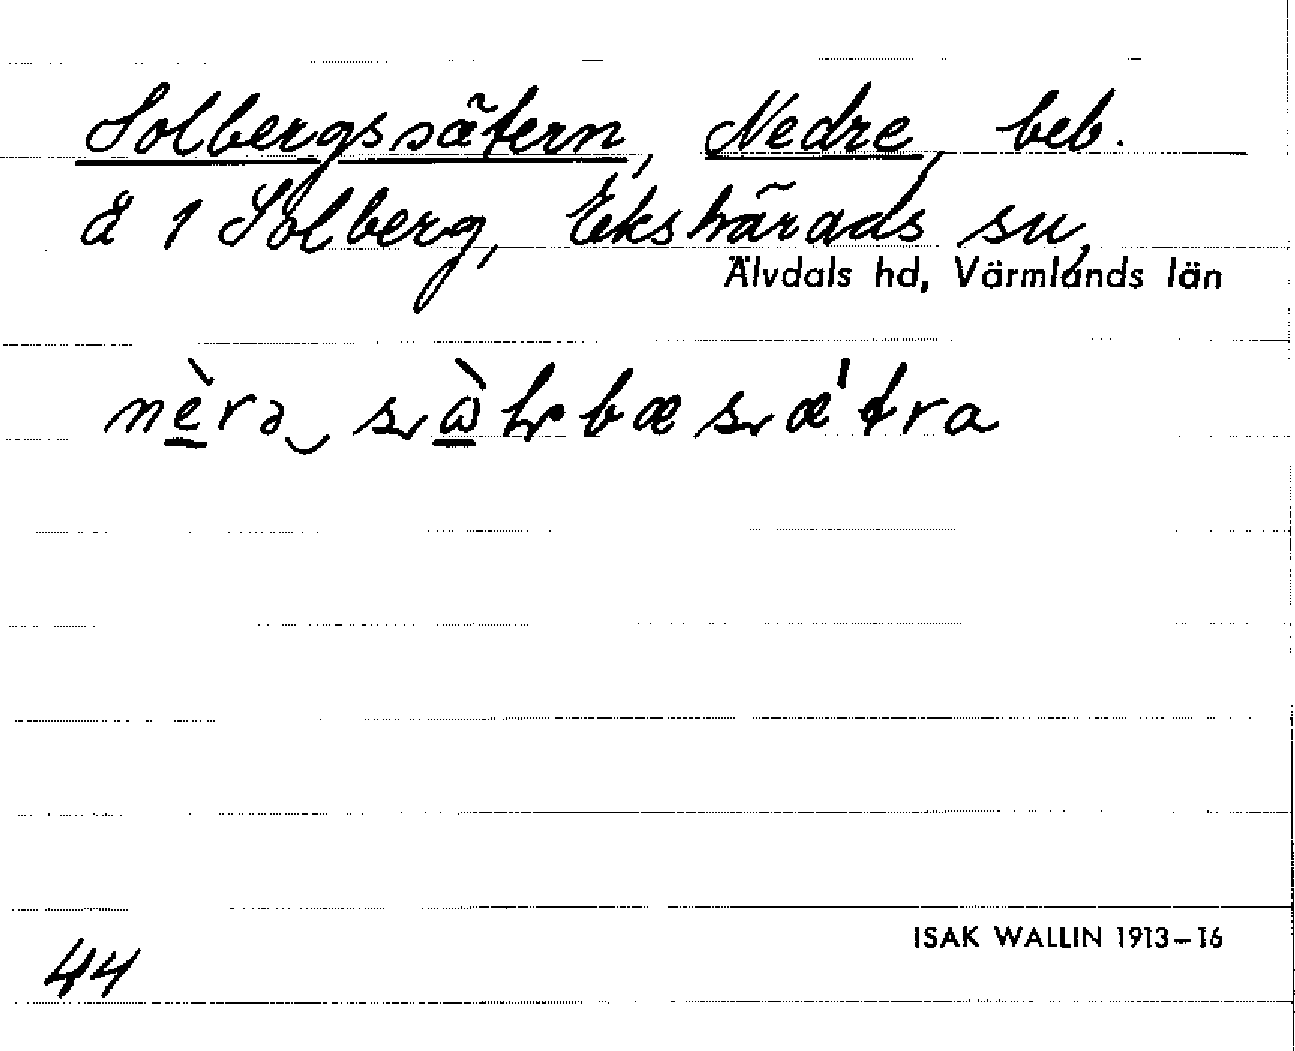 Solbergssätern, Nedre, beb.
å 1 Solberg, Ekshärads sn,
Älvdals hd, Värmlands län
44
ISAK WALLIN 1913–16